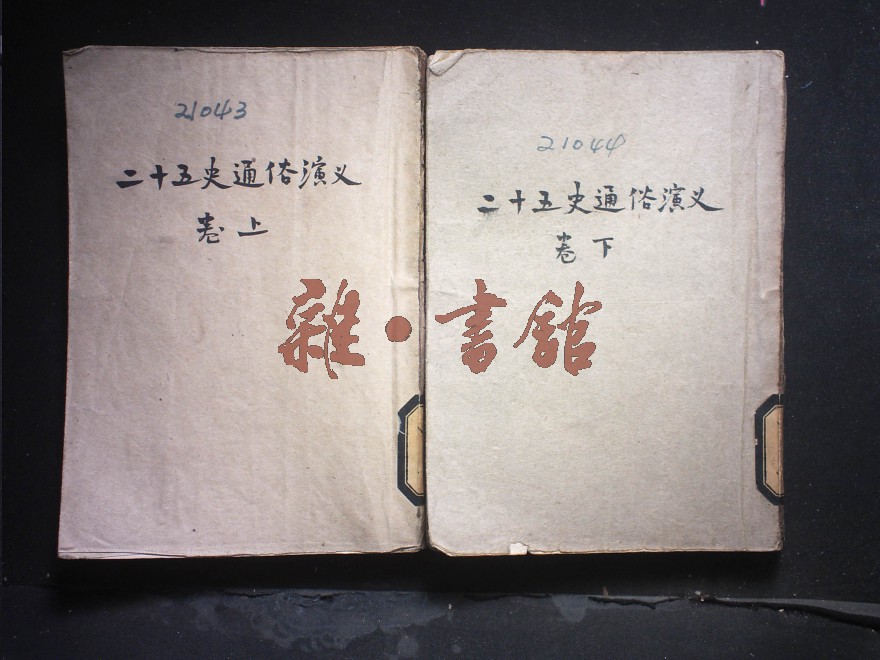 21043
二十五史通俗演义
卷上
21044
二十五史通俗演义
卷下
雜·書館